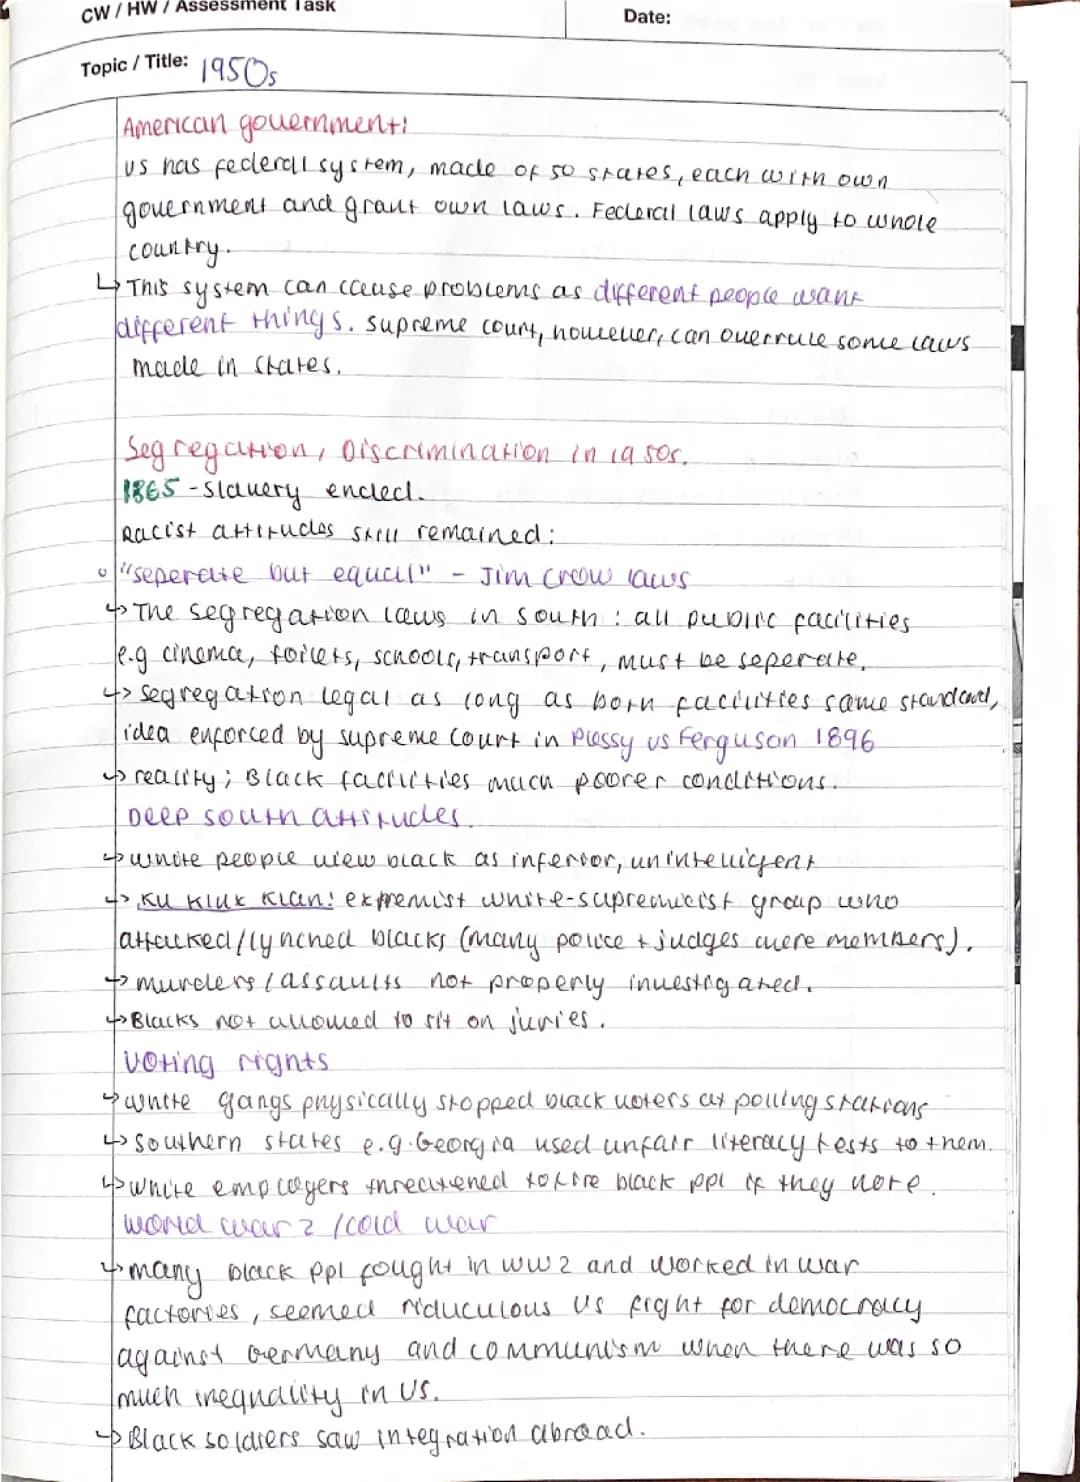 CW / HW / Assessment Task
Date:
Topic / Title: 1950s
American government:
US has federal system, made of 50 states, each with own
government and grant own laws. Federal laws apply to whole
country.
↳ This system can cause problems as different people want
different things. Supreme court, however, can overrule some laws
made in states.
Segregation, Discrimination in 1950s.
1865 - slavery ended.
Racist attitudes still remained:
"seperate but equal" - Jim Crow laws
↳ The segregation laws in south : all public facilities
e.g cinema, toilets, schools, transport, must be seperate.
↳ segregation legal as long as both facilities same standard,
idea enforced by supreme court in Plessy vs Ferguson 1896
↳ reality; Black facilities much poorer conditions.
Deep south attitudes.
↳ white people view black as inferior, unintelligent
↳ Ku Klux Klan: extremist white-supremicist group who
attacked/lynched blacks (many police + judges were members).
↳ murders/assaults not properly investigated.
↳ Blacks not allowed to sit on juries.
Voting rights
↳ white gangs physically stopped black voters at polling stations
↳ Southern states e.g. Georgia used unfair literacy tests to them.
↳ white employers threatened to fire black ppl if they vote.
World war 2 /cold war
↳ many black ppl fought in WW2 and worked in war
factories, seemed riduculous US fight for democracy
against Germany and communism when there was so
much inequality in US.
↳ Black soldiers saw integration abroad.